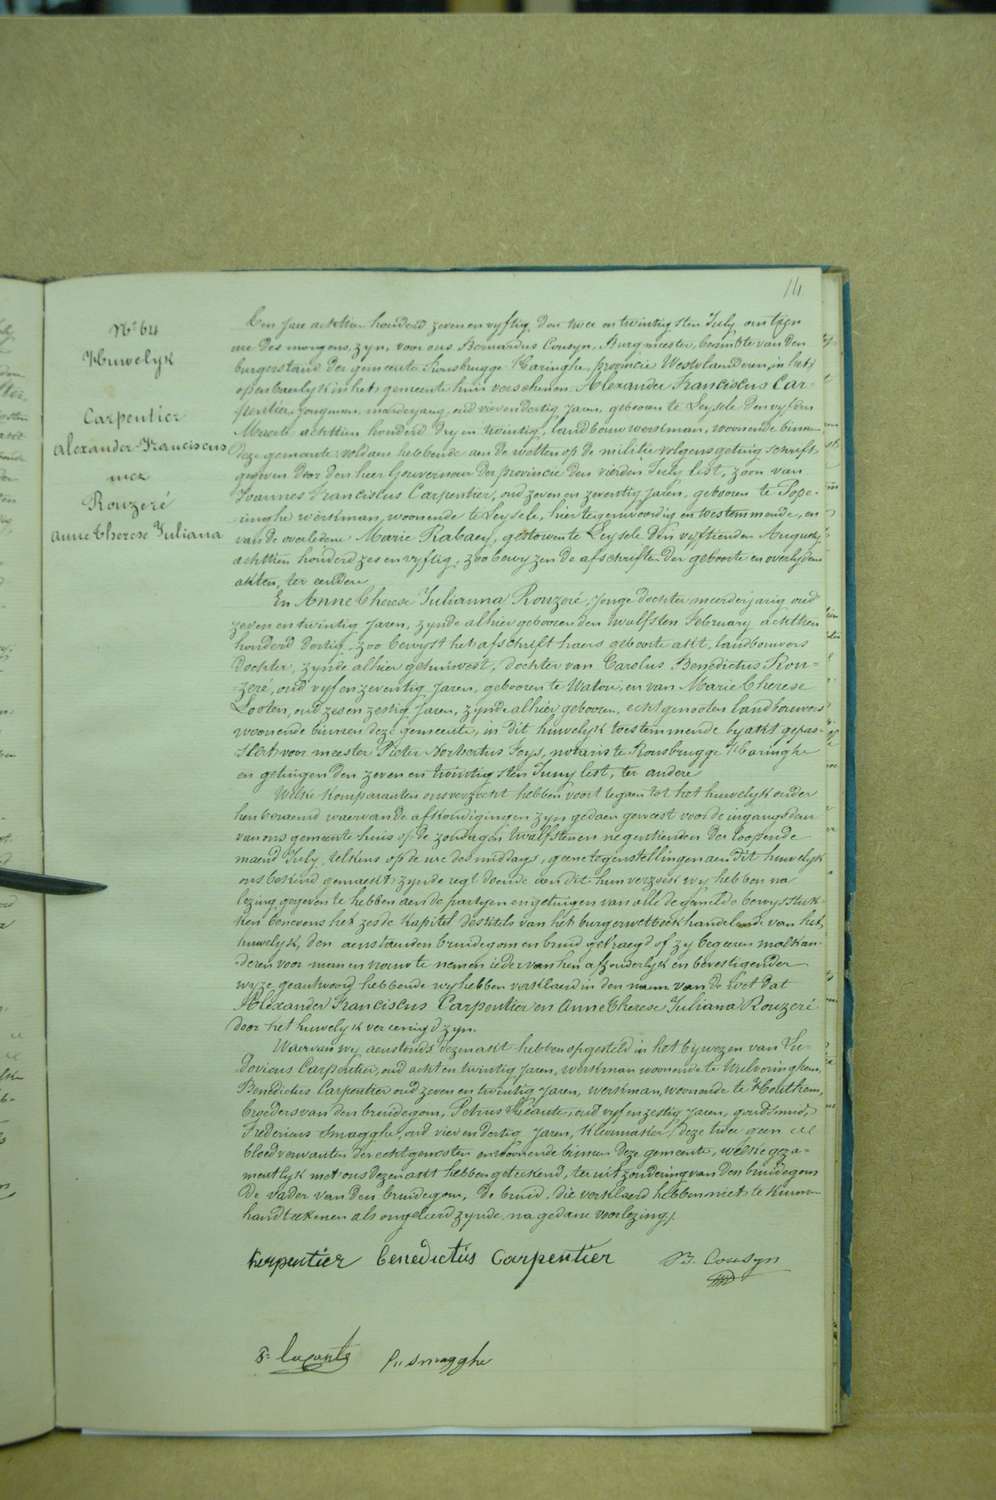 14
N° 64
Huwelyk
Carpentier
Alexander Franciscus
met
Rouzeré
Anne Therese Juliana
Den jare achttien honderd zeven en vyftig, den twee en twintigsten July om tien
ure des morgens, zyn, voor ons Bernardus Cousyn, Burgmeester, beambte van den
burgerstand der gemeente Rousbrugge-Haringhe, provincie Westvlaanderen, in het
openbaerlyk in het gemeente huis verschenen Alexander Franciscus Car-
pentier, jongman, meerderjarig, oud vier en dertig jaren, gebooren te Leysele den vyfden
Maerte achttien honderd dry en twintig, landbouw werkman, woonende binnen
deze gemeente, voldaen hebbende aen de wetten op de militie volgens getuig schrift
gegeven door den heer Gouverneur der provincie den vierden July lest, zoon van
Joannes Franciscus Carpentier, oud zeven en zeventig jaren, gebooren te Pope-
ringhe, werkman, woonende te Leysele, hier tegenwoordig en toestemmende, en
van de overledene Marie Rabaey, gestorven te Leysele den vyftienden Augusty
achttien honderd zes en vyftig, zoo bewyzen de afschriften der geboorte en overlydens
akten, ter eendere
En Anne Therese Julianna Rouzeré, jonge dochter meerderjarig, oud
zeven en twintig jaren, zynde alhier gebooren den twalfsten February achttien
honderd dertig, zoo bewyst het afschrift haers geboorte akt, landbouwers
dochter, zynde alhier gehuisvest, dochter van Carolus Benedictus Rou-
zeré, oud vyf en zeventig jaren, gebooren te Watou, en van Marie Therese
Looten, oud zes en zestig jaren, zynde alhier gebooren, echtgenooten landbouwers
woonende binnen deze gemeente, in dit huwelyk toestemmende by akt gepas-
seert voor meester Pieter Norbertus Feys, notaris te Rousbrugge Haringhe
en getuigen den zeven en twintigsten Juny lest, ter andere
Welke komparanten ons verzocht hebben voort te gaen tot het huwelyk onder
hen beraemd waervan de afkondigingen zyn gedaen geweest voor de ingangsdeur
van ons gemeente huis op de zondagen twalfsten en negentienden der loopende
maend July, telkens op de ure des middags, geene tegenstellingen aen dit huwelyk
ons bekend gemaekt zynde regt doende aen dit hun verzoek wy hebben na
lezing gegeven te hebben aen de partyen en getuigen van alle de gemelde bewysstuk-
ken benevens het zesde kapitel des titels van het burger wetboek handelende van het
huwelyk, den aenstaenden bruidegom en bruid gevraegd of zy begeeren malkan-
deren voor man en vrouw te nemen ieder van hen afzonderlyk en bevestigender
wyze geantwoord hebbende wy hebben verklaerd in den naem van de wet dat
Alexander Franciscus Carpentier en Anne Therese Juliana Rouzeré
door het huwelyk vereenigd zyn.
Waervan wy aenstonds dezen akt hebben opgesteld in het bywezen van Lu-
dovicus Carpentier, oud acht en twintig jaren, werkman woonende te Wulveringhem,
Benedictus Carpentier oud zeven en twintig jaren, werkman, woonende te Houthem,
broeders van den bruidegom, Petrus oud vyf en zestig jaren, goudsmid,
Fredericus Smagghe, oud vier en dertig jaren, kleermaker, deze twee geen
bloedverwanten der echtgenooten en woonende binnen deze gemeente, welke geza-
mentlyk met ons dezen akt hebben geteekend, ter uitzondering van den bruidegom
de vader van den bruidegom, de bruid, die verklaerd hebben niet te kunnen
handteekenen als ongeleerd zynde, na gedane voorlezing.
Karpentier Benedictus Carpentier B. Cousyn
Smagghe